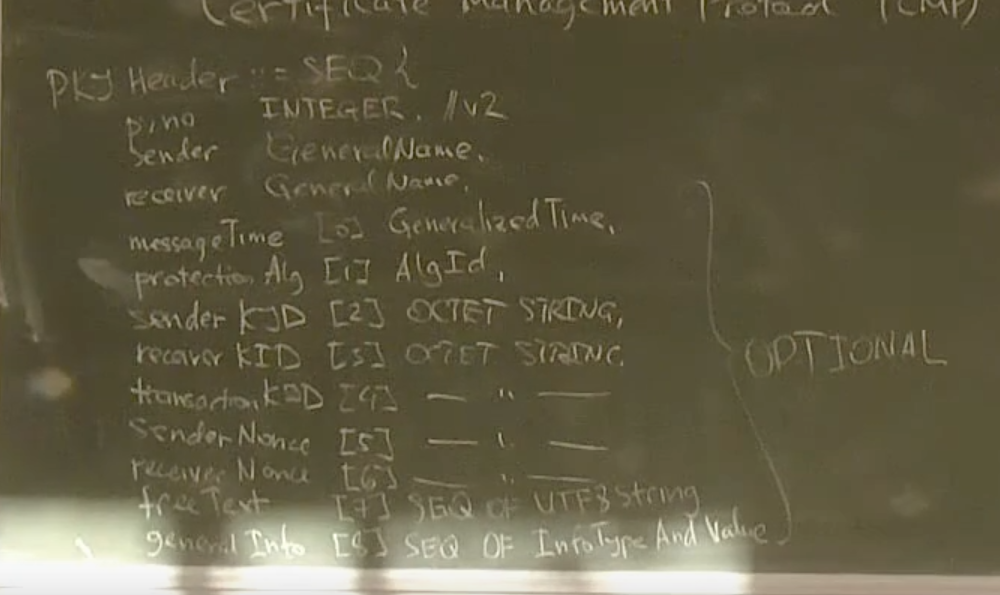 Certificate Management Protocol (CMP)
PKI Header ::= SEQ {
pvno INTEGER, //v2
sender GeneralName,
receiver GeneralName,
messageTime [0] GeneralizedTime,
protection Alg [1] AlgId,
sender KID [2] OCTET STRING,
receiver KID [3] OCTET STRING
transaction KID [4] — " —
Sender Nonce [5] — " —
receiver Nonce [6] — " —
freeText [7] SEQ OF UTF8String
general Info [8] SEQ OF InfoTypeAndValue
} OPTIONAL